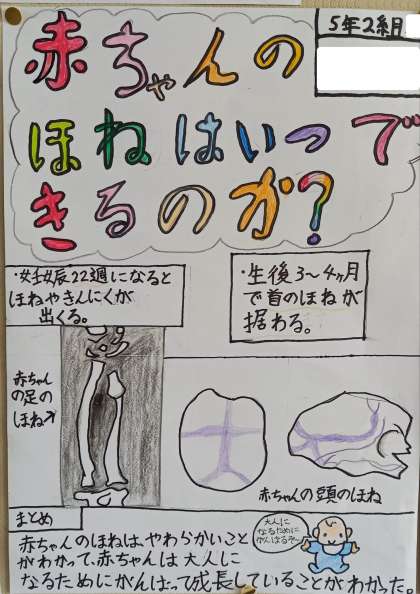 5年2組
赤ちゃんの
ほねはいつで
きるのか?
・妊娠22週になると
ほねやきんにくが
出くる。
・生後3~4ヶ月
で首のほねが
据わる。
赤ちゃん
の足の
ほね↗
赤ちゃんの頭のほね
まとめ
大人に
なるために
がんばるぞ~
赤ちゃんのほねは、やわらかいこと
がわかって、赤ちゃんは大人に
なるためにがんばって成長していることがわかった。